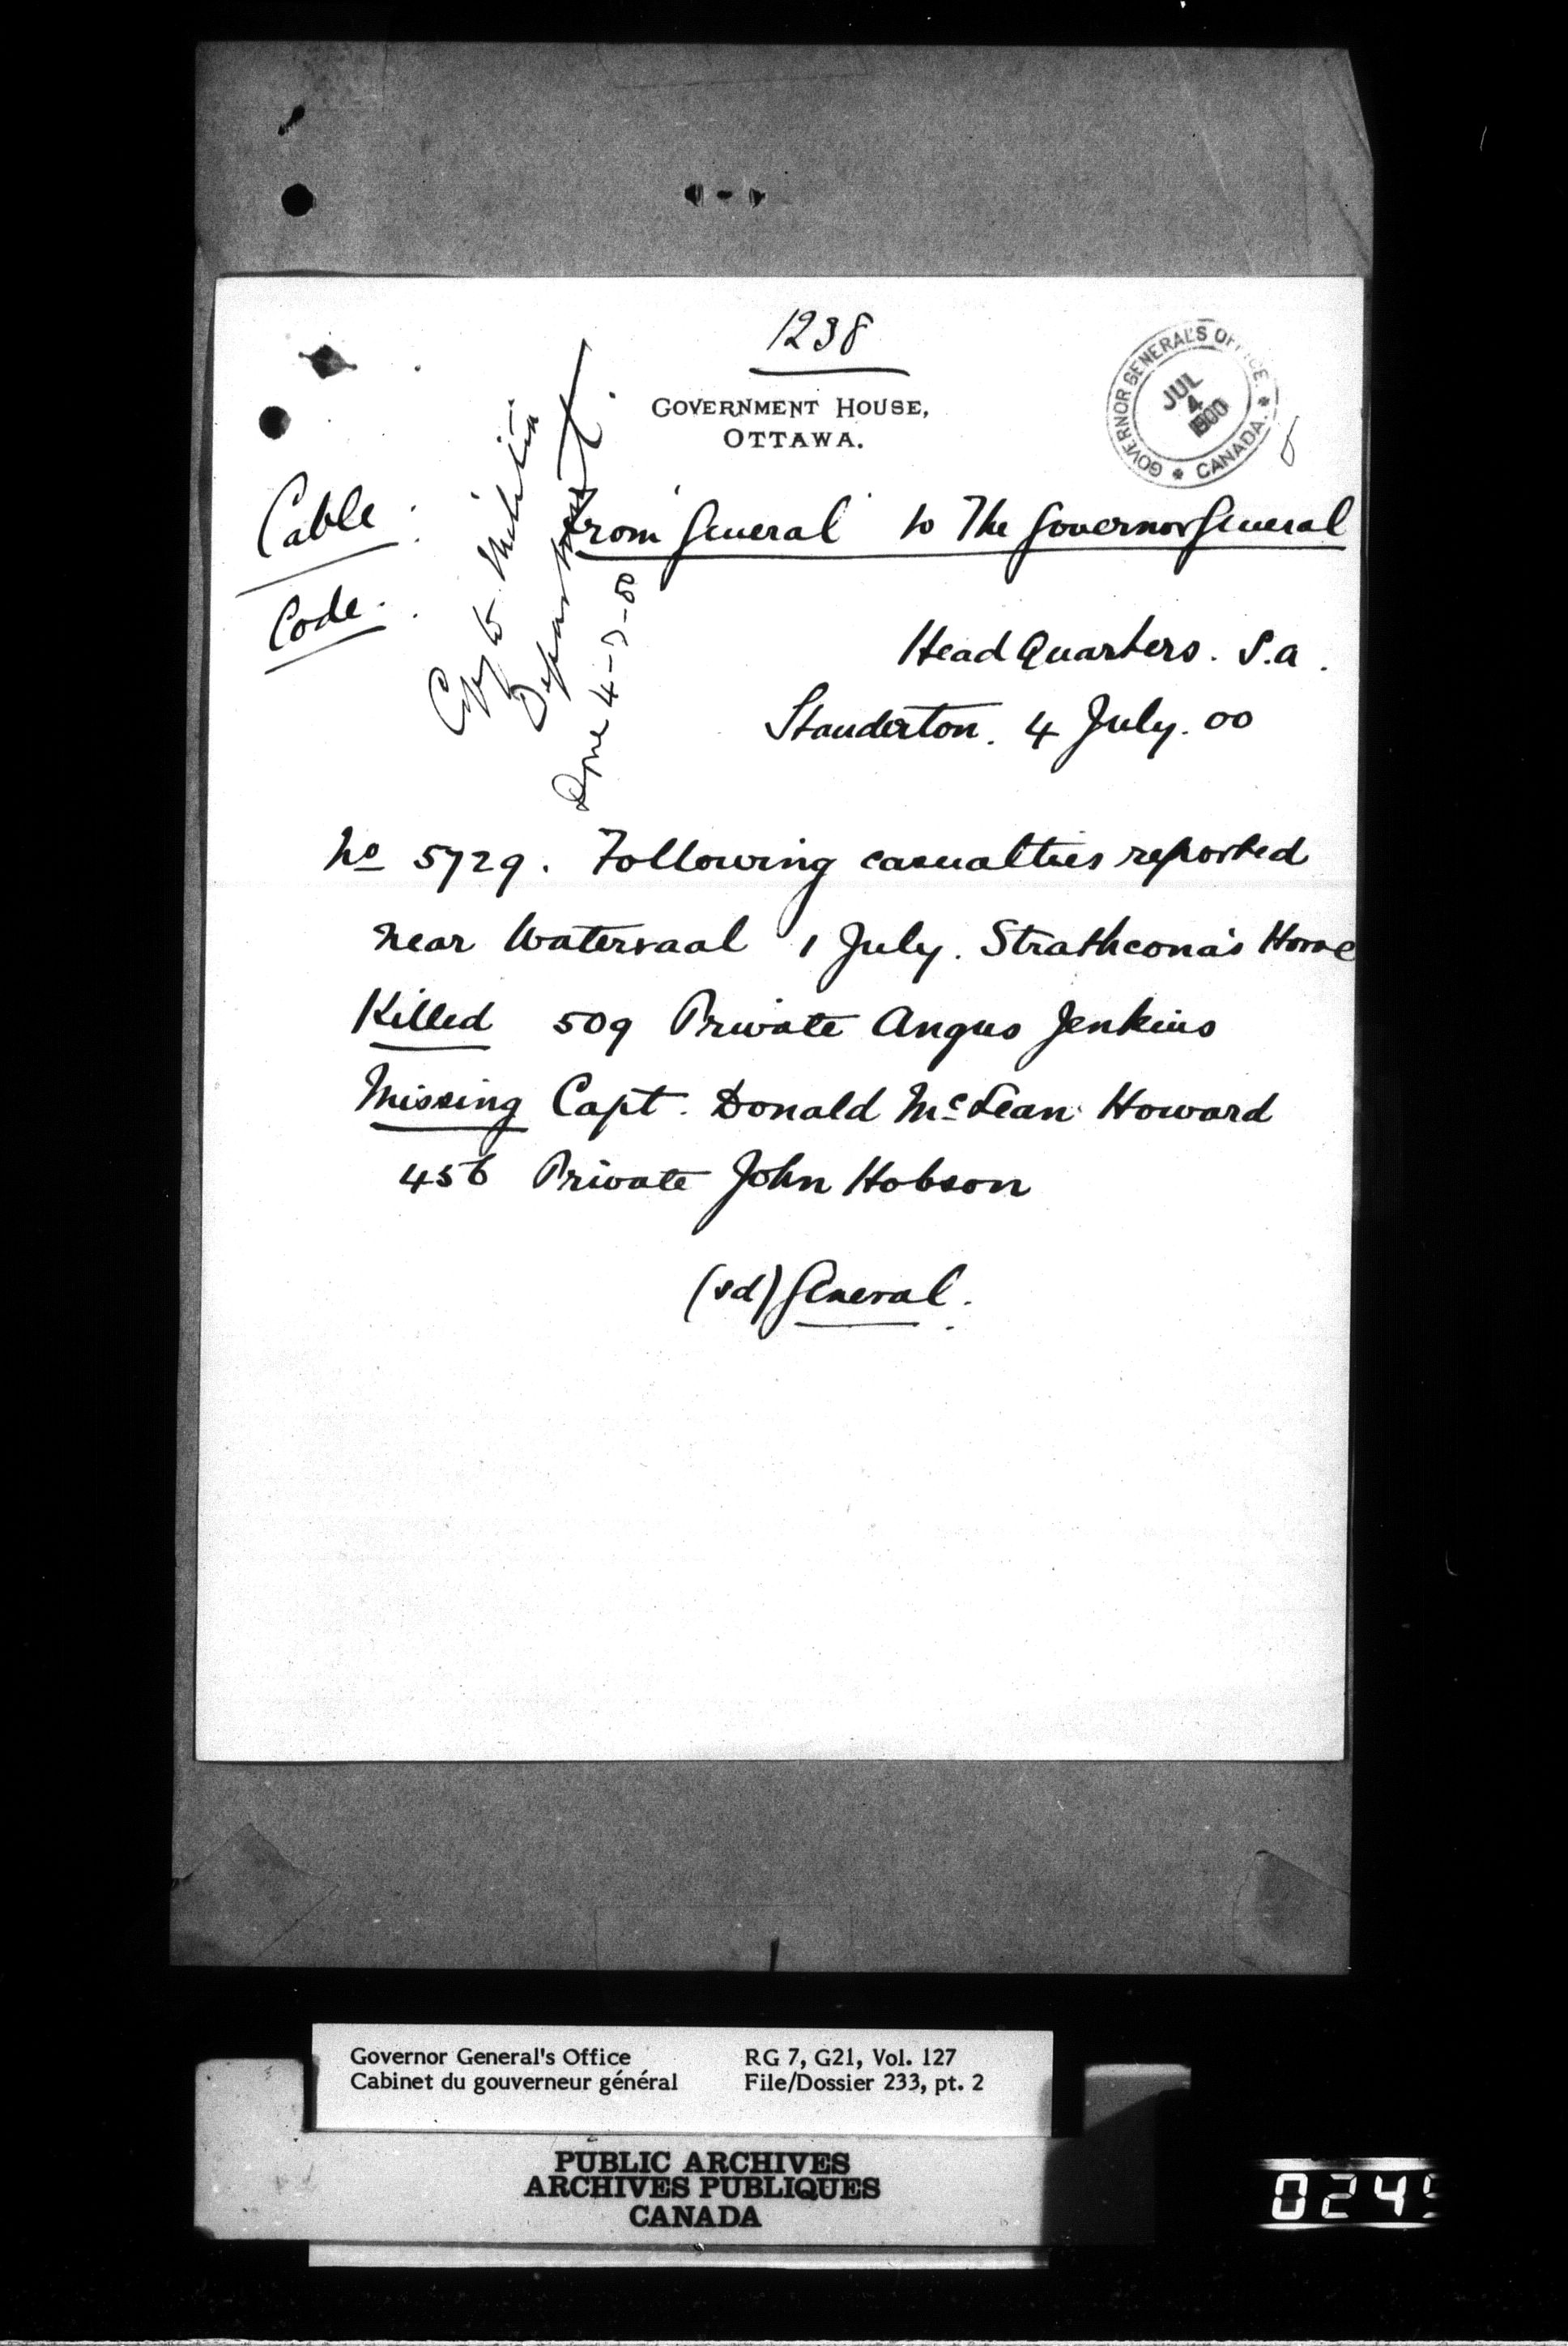 1238
GOVERNMENT HOUSE,
OTTAWA.
GOVERNOR GENERAL'S OFFICE. CANADA.
JUL
4
1900
Cable.
Code.
Copy to Militia
Department.
Done 4-7-00
From "General" to The Governor General
Head Quarters. S.a.
Standerton. 4 July. 00
No 5729. Following casualties reported
near Watervaal 1 July. Strathcona's Horse
Killed 509 Private Angus Jenkins
Missing Capt. Donald McLean Howard
456 Private John Hobson
(sd) General.
Governor General's Office RG 7, G21, Vol. 127
Cabinet du gouverneur général File/Dossier 233, pt. 2
PUBLIC ARCHIVES
ARCHIVES PUBLIQUES
CANADA
0245